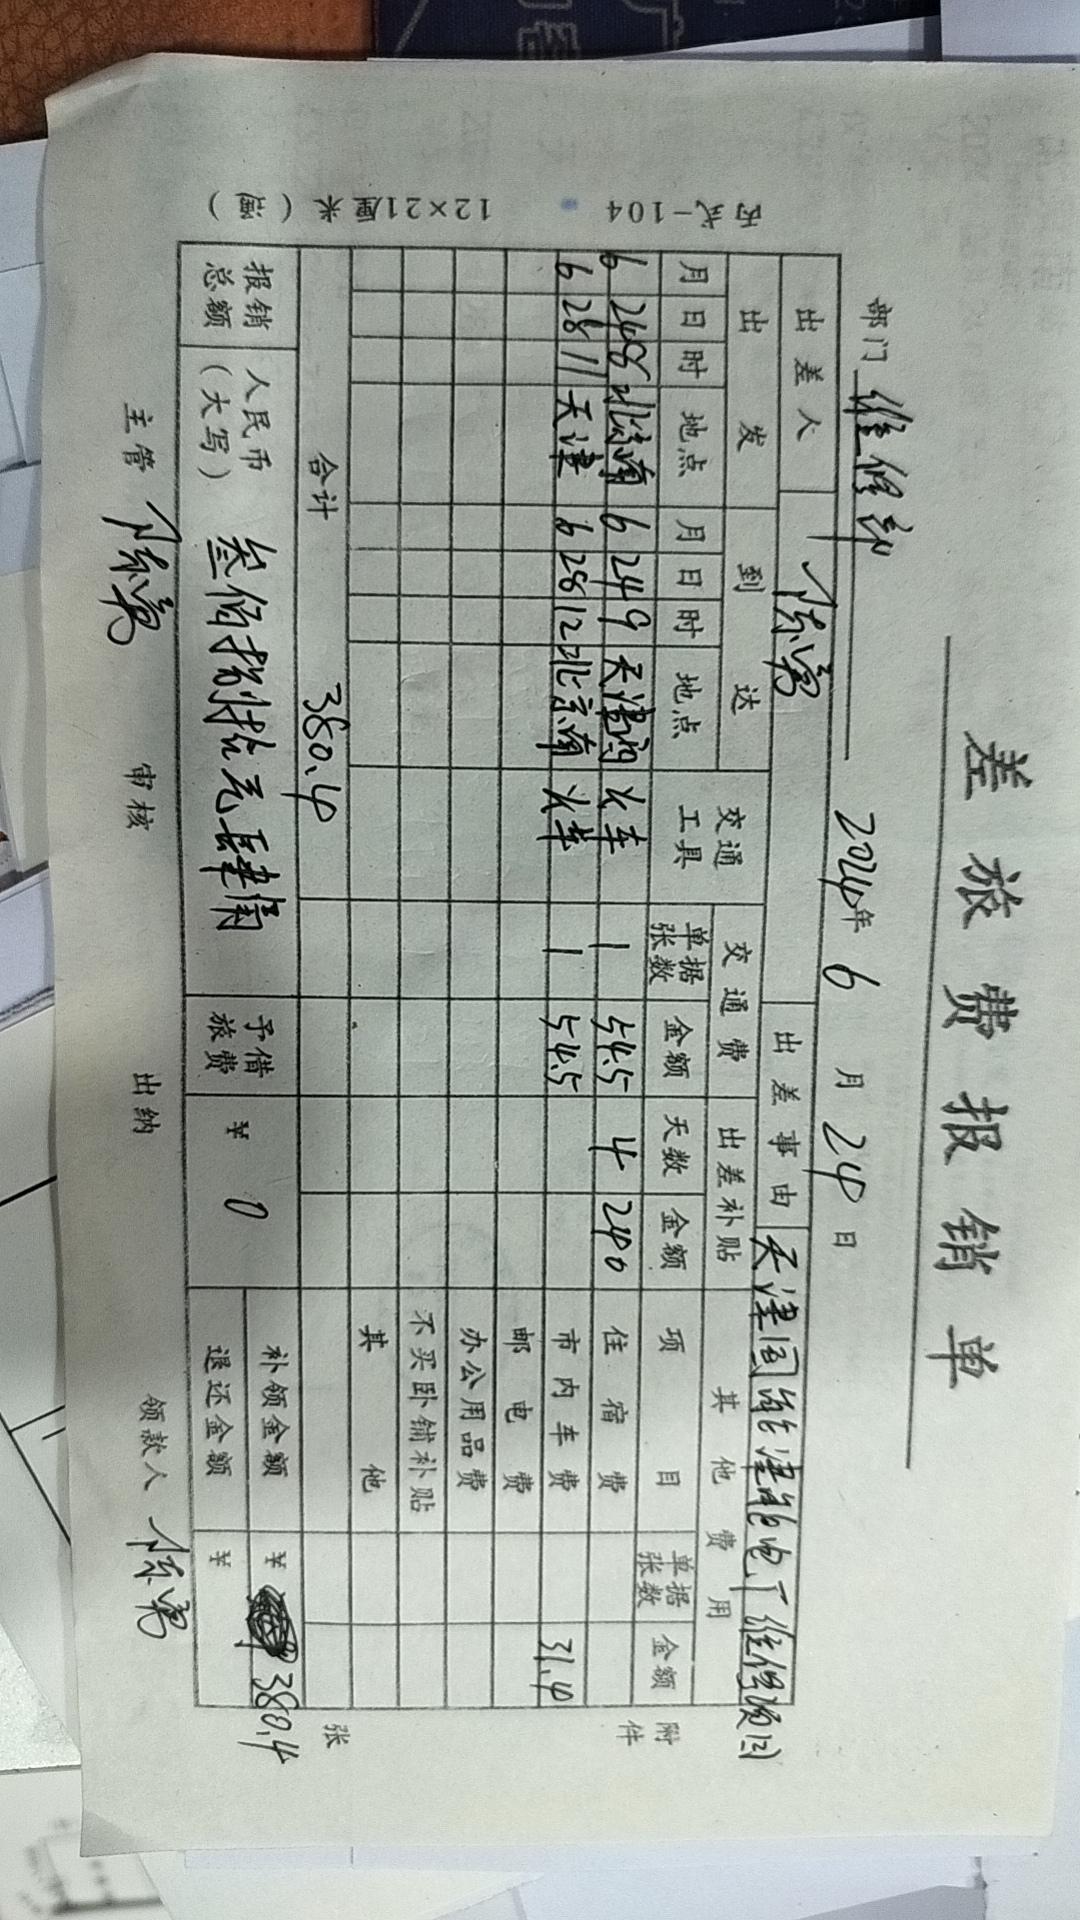 差旅费报销单
部门 维修部 2024年 6 月 24 日
出差人 陈勇 出差事由 天津国能津能电厂维修项目
出发 到达 交通工具 交通费 出差补贴 其他费用
月 日 时 地点 月 日 时 地点 单据张数 金额 天数 金额 项目 单据张数 金额
6 24 8 北京南 6 24 9 天津西 火车 1 54.5 4 240 住宿费
6 28 11 天津 6 28 12 北京南 火车 1 54.5 市内车费 31.4
邮电费
办公用品费
不买卧铺补贴
其他
合计 380.4
附件 张
报销总额 人民币(大写) 叁佰捌拾元肆角 予借旅费 ¥ 0 补领金额 ¥ 380.4
退还金额 ¥
主管 陈勇 审核 出纳 领款人 陈勇
丙式-104 12×21厘米(通)